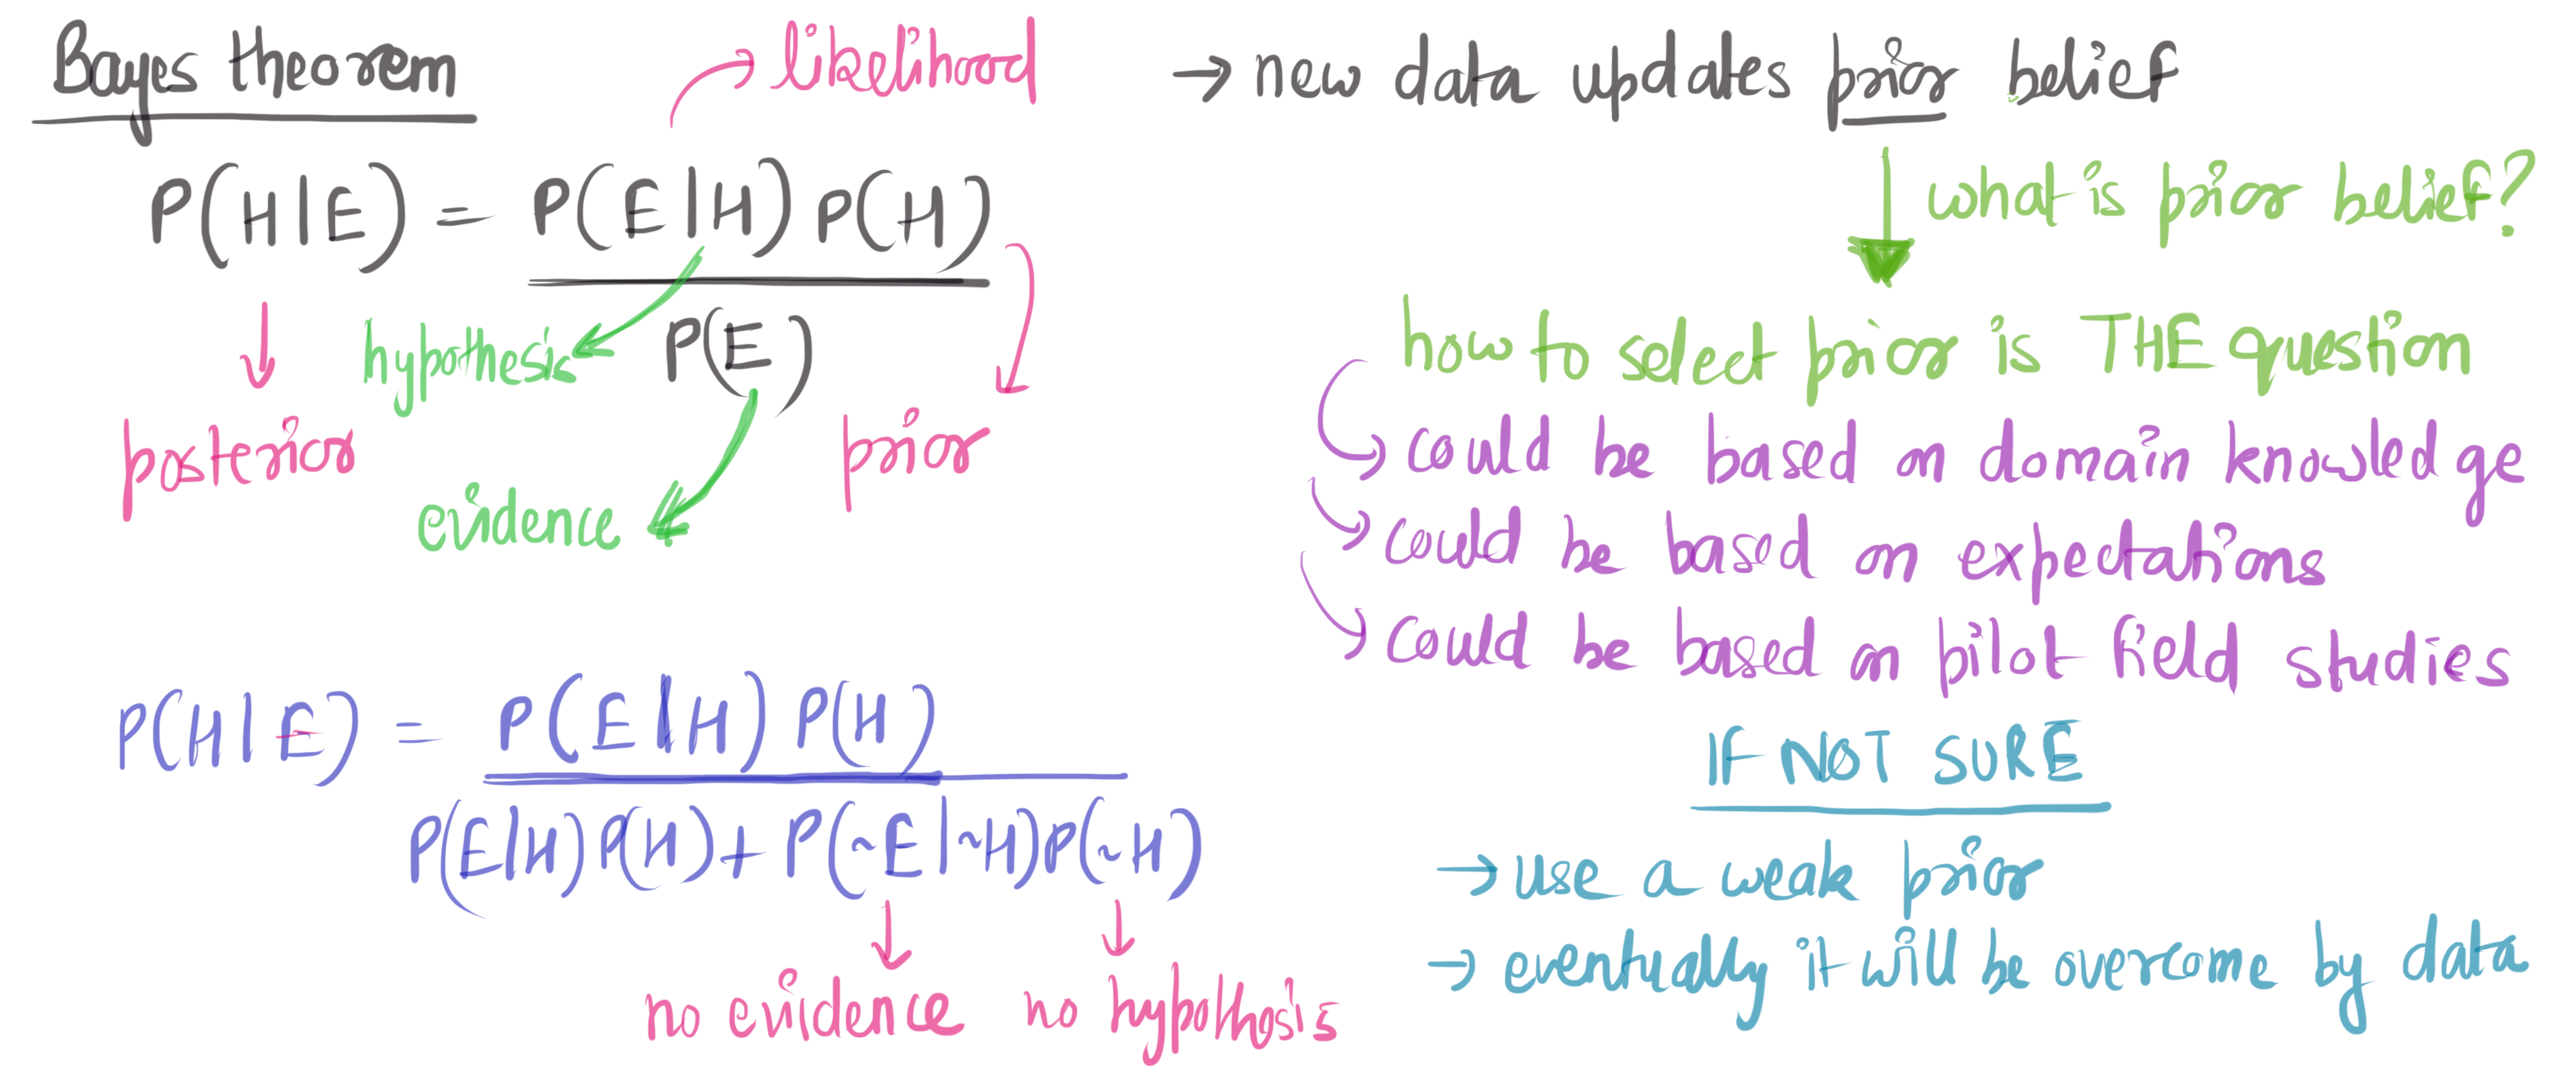 Bayes theorem
likelihood
P(H|E) = P(E|H) P(H)
P(E)
hypothesis
posterior
prior
evidence
P(H|E) = P(E|H) P(H)
P(E|H) P(H) + P(~E|~H) P(~H)
no evidence no hypothesis
→ new data updates prior belief
what is prior belief?
how to select prior is THE question
could be based on domain knowledge
could be based on expectations
could be based on pilot field studies
IF NOT SURE
→ use a weak prior
→ eventually it will be overcome by data